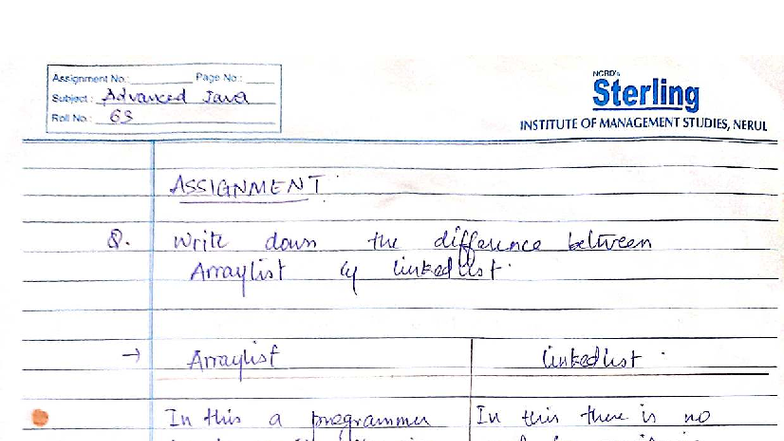 Assignment No.: Page No.:
Subject: Advanced Java
Roll No.: 63
NCRD's
Sterling
INSTITUTE OF MANAGEMENT STUDIES, NERUL
ASSIGNMENT
Q. Write down the difference between
Arraylist & linkedlist.
→ Arraylist linkedlist.
In this a programmer In this there is no